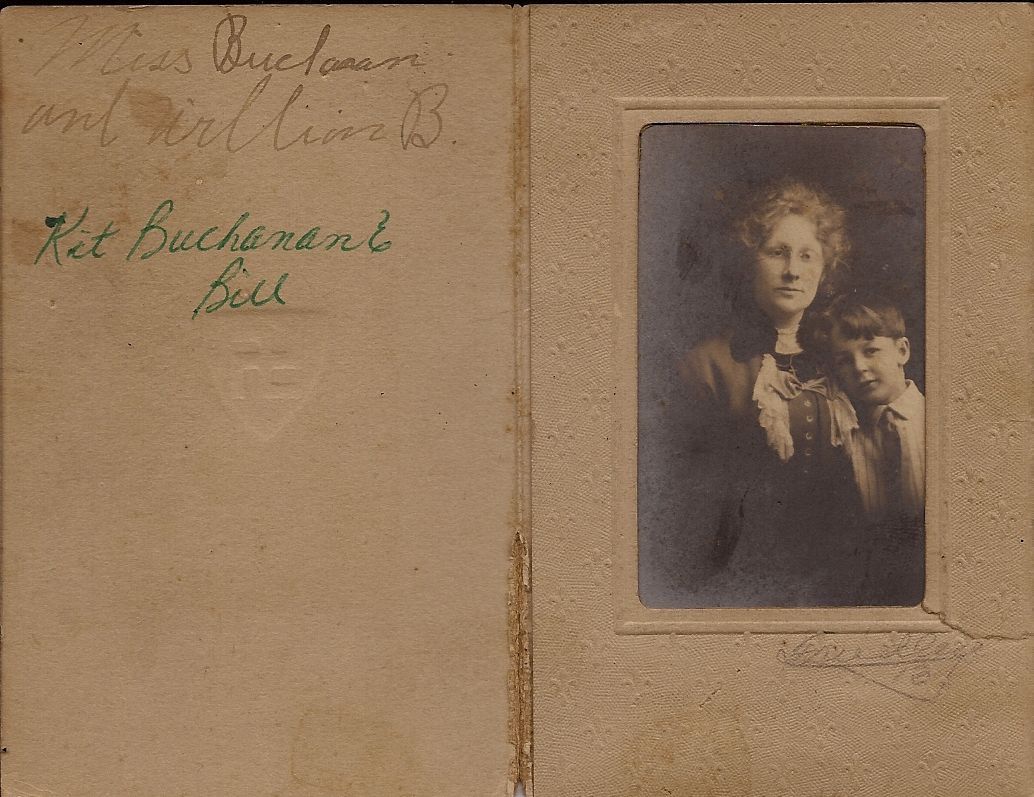 Miss Buchanan
and William B.
Kit Buchanan &
Bill